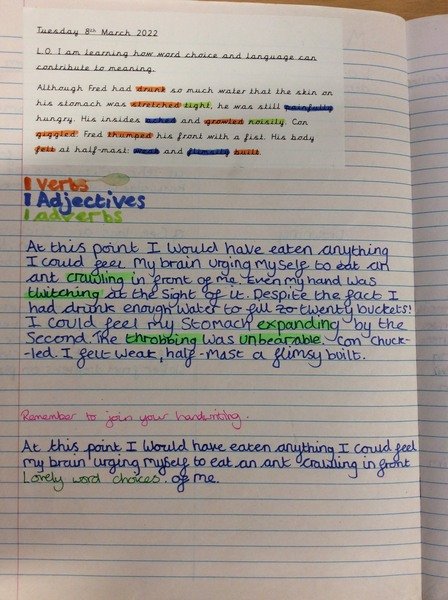 Tuesday 8th March 2022
L.O. I am learning how word choice and language can
contribute to meaning.
Although Fred had drunk so much water that the skin on
his stomach was stretched tight, he was still painfully
hungry. His insides ached and growled noisily. Con
giggled. Fred thumped his front with a fist. His body
felt at half-mast: weak and flimsily built.
Verbs
Adjectives
adverbs
At this point I would have eaten anything
I could feel my brain urging myself to eat an
ant crawling in front of me. Even my hand was
twitching at the sight of it. Despite the fact I
had drunk enough water to fill to twenty buckets!
I could feel my stomach expanding by the
second. The throbbing was unbearable. Con chuck-
-led. I felt weak, half-mast a flimsy built.
Remember to join your handwriting.
At this point I would have eaten anything I could feel
my brain urging myself to eat an ant crawling in front
Lovely word choices. of me.